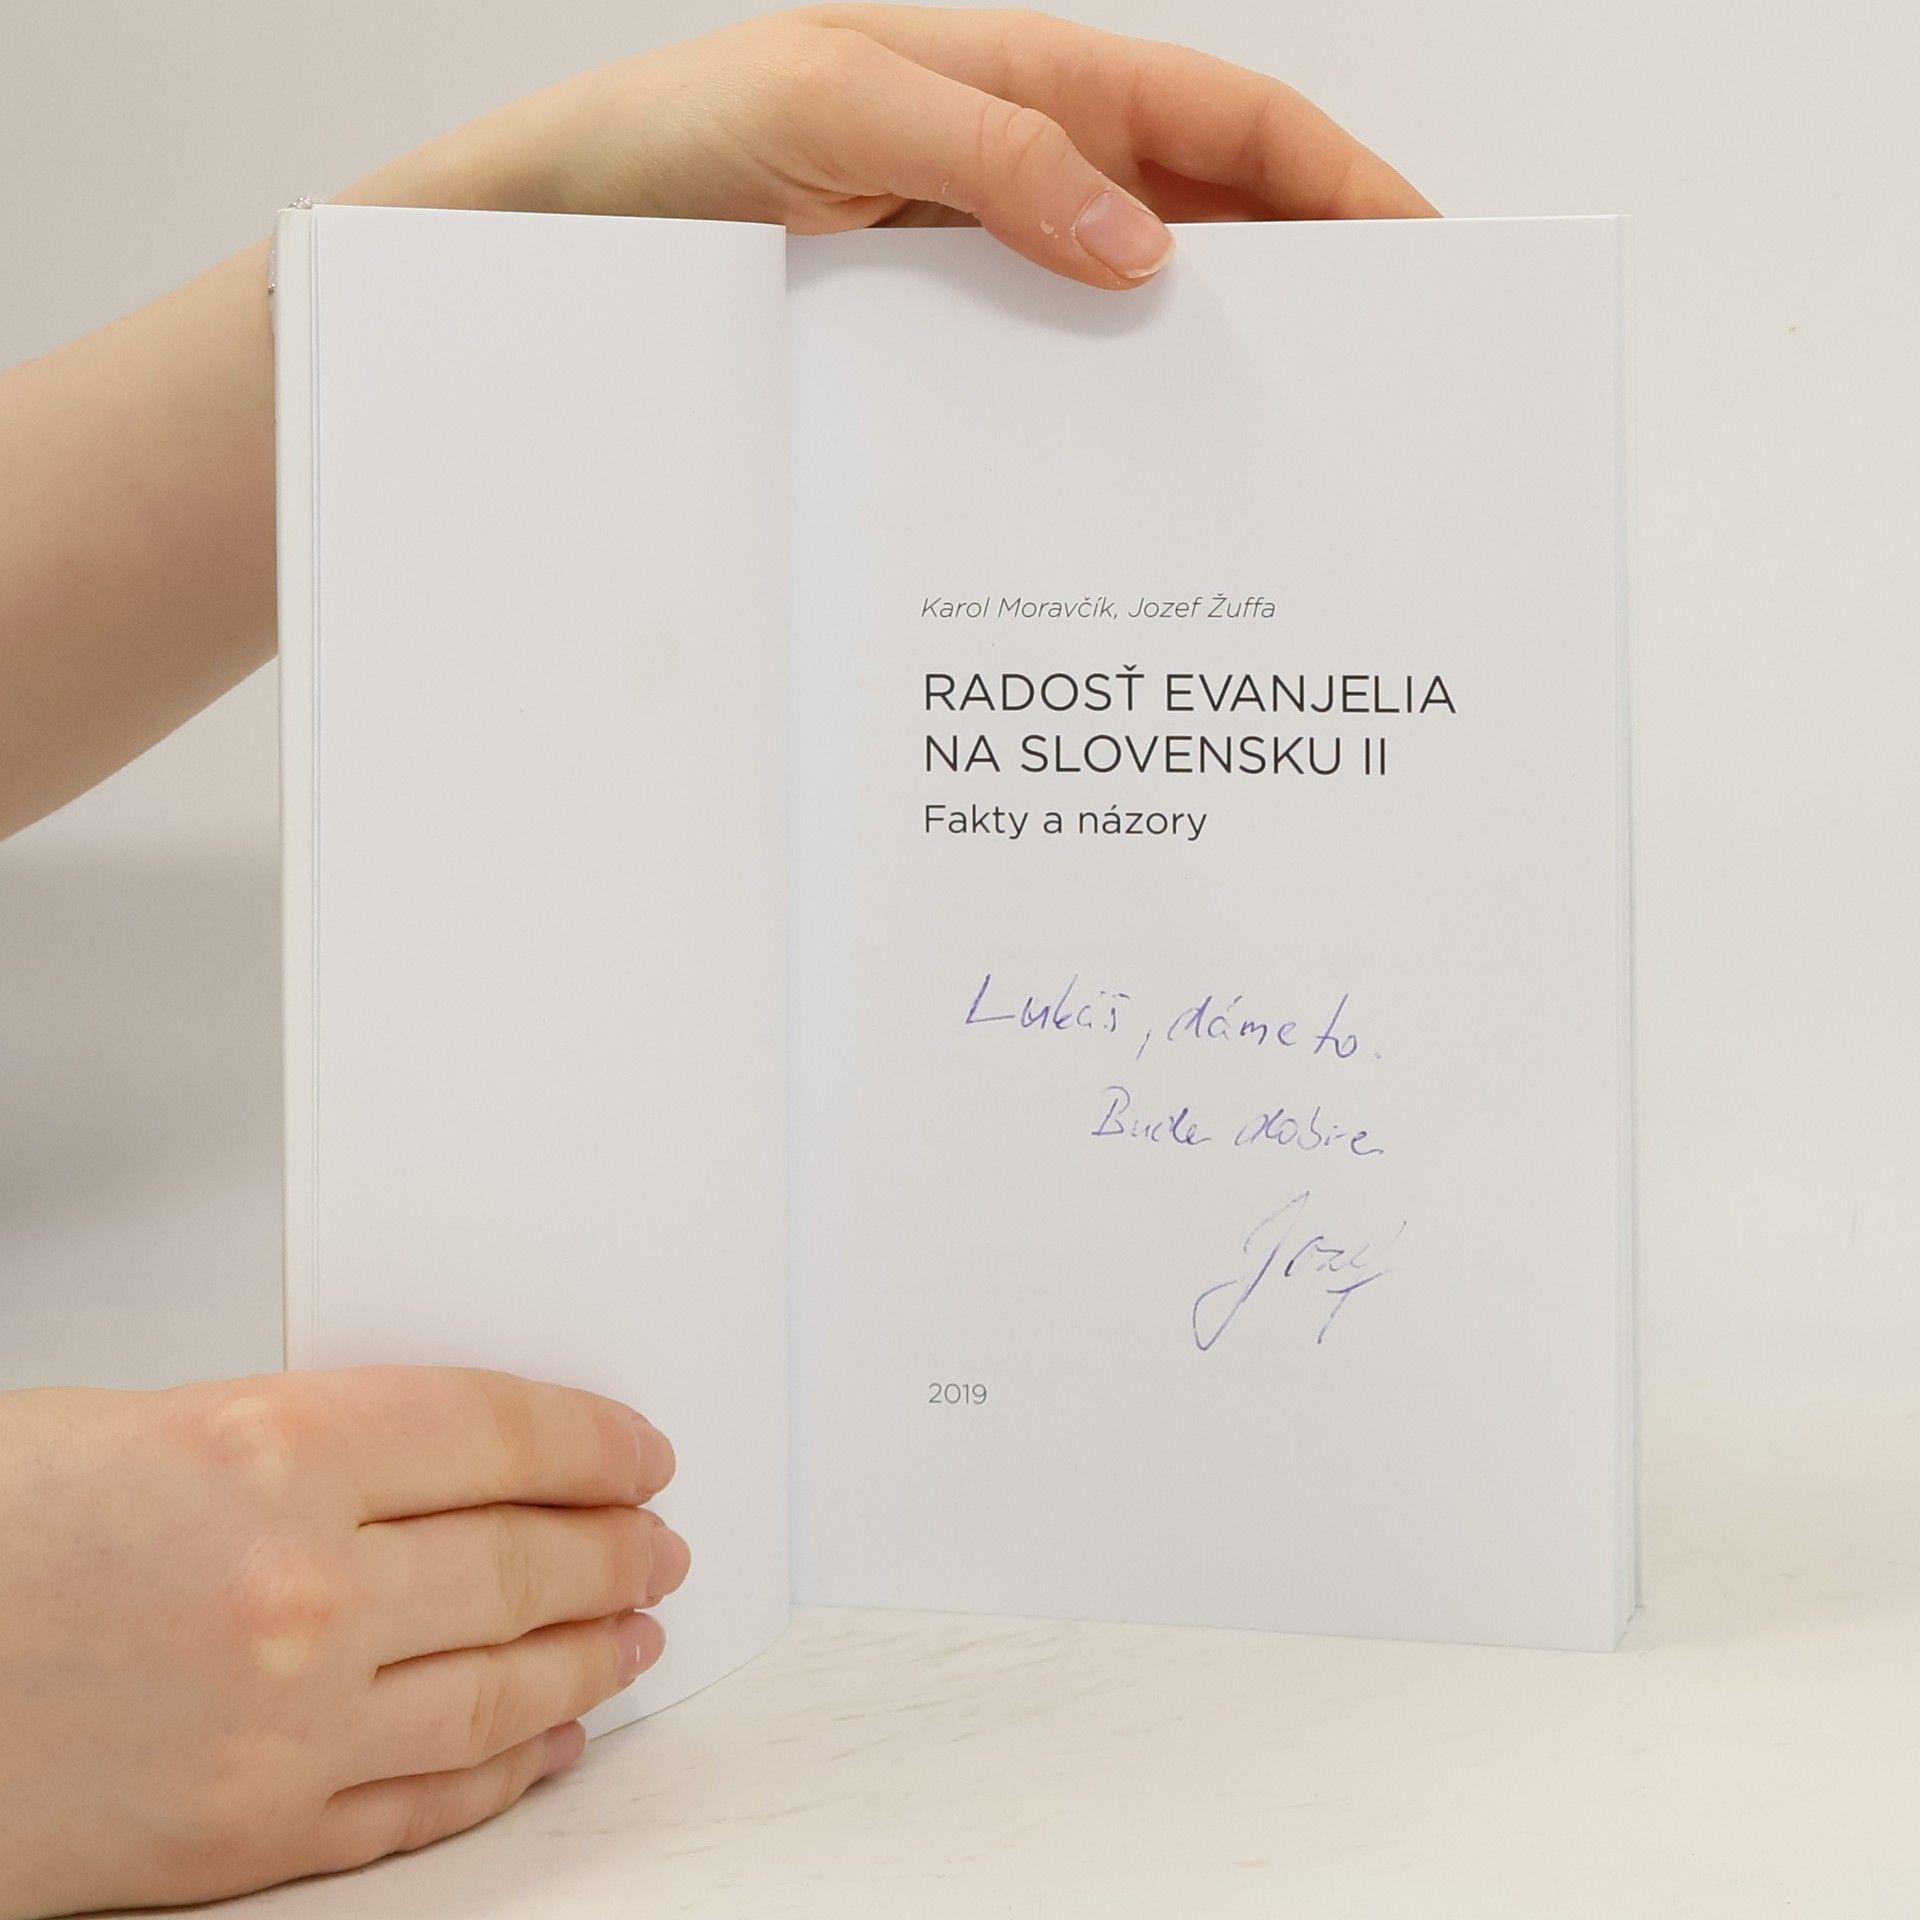 Karol Moravčík, Jozef Žuffa
RADOSŤ EVANJELIA
NA SLOVENSKU II
Fakty a názory
Lukáš, dáme to.
Bude dobre
Jozef
2019